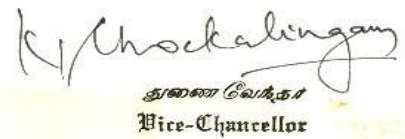 K. Chockalingam
துணைவேந்தர்
Vice-Chancellor